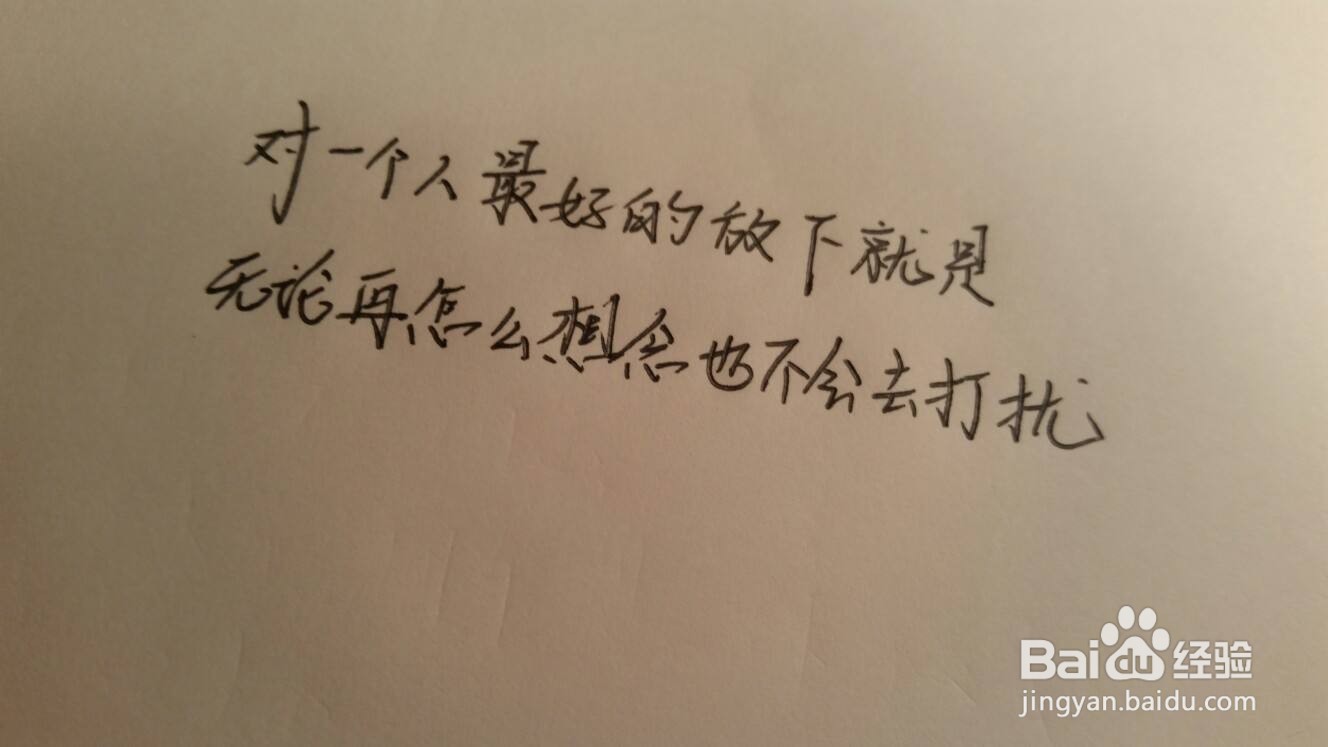 对一个人最好的放下就是
无论再怎么想念也不会去打扰
Baidu 经验
jingyan.baidu.com